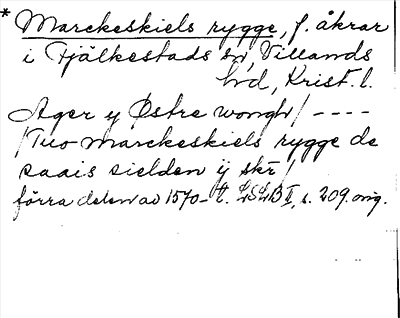 * Marckeskiels rygge, f. åkrar
i Fjälkestads sn, Villands
hd, Krist. l.
Ager y Østre wongh / - - - -
/ Tuo marckeskiels rygge de
saais sielden ij skr /
förra delen av 1570- t. LSLB II, s. 209. orig.